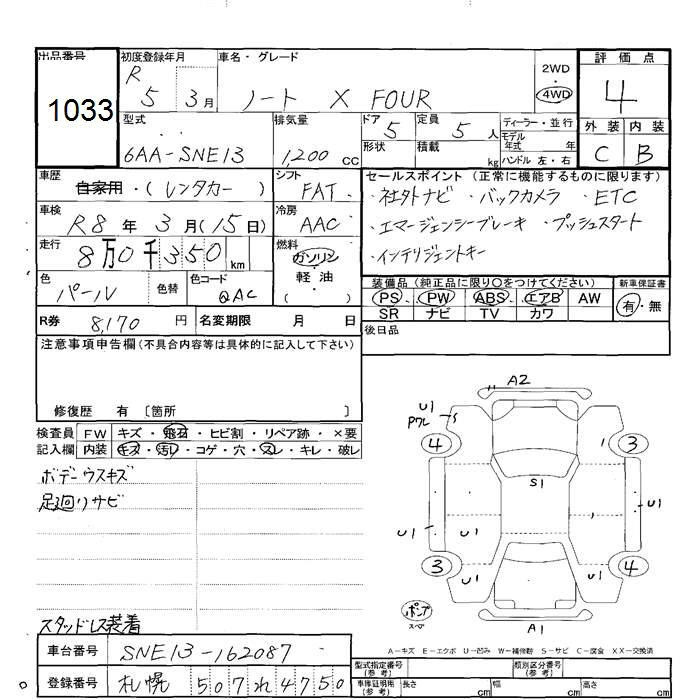 出品番号 初度登録年月 車名・グレード 評価点
1033 R 5 3月 ノート X FOUR 2WD ・ 4WD 4
型式 排気量 ドア 5 定員 5 人 ディーラー・並行 外装 内装
6AA-SNE13 1,200 CC 形状 積載 kg モデル年式 年 ハンドル 左・右 C B
車歴 自家用 ・(レンタカー) シフト FAT
車検 R8 年 3 月(15 日) 冷房 AAC
走行 8万0千350 km 燃料 ガソリン ・ 軽油 ・ ( )
色 パール 色替 色コード QAC
R券 8,170 円 名変期限 月 日
セールスポイント (正常に機能するものに限ります)
・社外ナビ ・バックカメラ ・ETC
・エマージェンシーブレーキ ・プッシュスタート
・インテリジェントキー
装備品 (純正品に限り○をつけてください) 新車保証書
PS PW ABS エアB AW 有・無
SR ナビ TV カワ
後日品
注意事項申告欄(不具合内容等は具体的に記入して下さい)
修復歴 有 〔箇所 〕
検査員 FW キズ・飛石・ヒビ割・リペア跡・×要
記入欄 内装 キズ・汚レ・コゲ・穴・スレ・キレ・破レ
ボデーウスキズ
足廻りサビ
スタッドレス装着
車台番号 SNE13-162087
登録番号 札幌 507れ4750
A2
U1
PワレS
4 3
S1
U1 U1 U1
3 U1 U1 4
ポンプ
スペア
A1
A－キズ E－エクボ U－凹み W－補修跡 S－サビ C－腐食 XX－交換済
型式指定番号(参考) 類別区分番号(参考)
車庫証明用(参考) 長さ cm 幅 cm 高さ cm